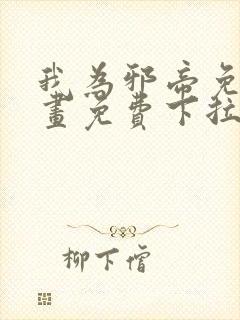 我为邪帝免
画免费下拉
柳下僧